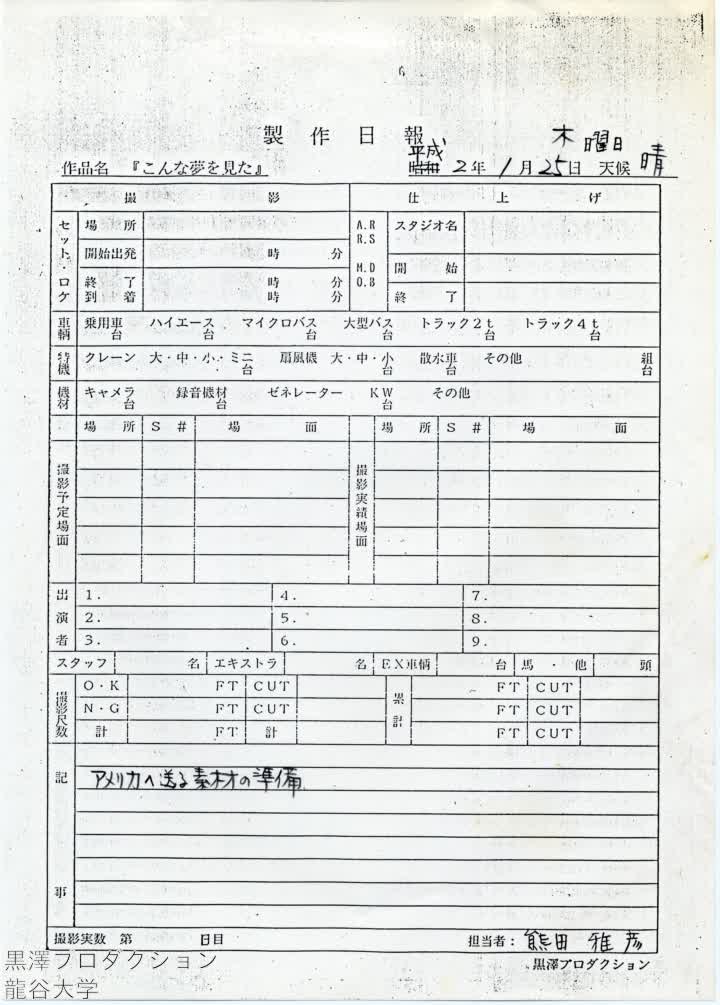 製作日報
木曜日
作品名 『こんな夢を見た』 平成 昭和 2年 1月 25日 天候 晴
撮影 仕上げ
セット・ロケ 場所 A.R R.S スタジオ名
開始出発 時 分 M.D O.B 開始
終了 時 分
到着 時 分 終了
車輌 乗用車 台 ハイエース 台 マイクロバス 台 大型バス 台 トラック2t 台 トラック4t 台
特機 クレーン 大・中・小・ミニ 台 扇風機 大・中・小 台 散水車 台 その他 組 台
機材 キャメラ 台 録音機材 台 ゼネレーター KW 台 その他
場所 S# 場面 場所 S# 場面
撮影予定場面 撮影実績場面
出演者 1. 4. 7.
2. 5. 8.
3. 6. 9.
スタッフ 名 エキストラ 名 EX車輌 台 馬・他 頭
撮影尺数 O・K FT CUT 累計 FT CUT
N・G FT CUT FT CUT
計 FT 計 FT CUT
記事 アメリカへ送る素材の準備.
撮影実数 第 日目 担当者: 熊田雅彦
黒澤プロダクション
黒澤プロダクション
龍谷大学